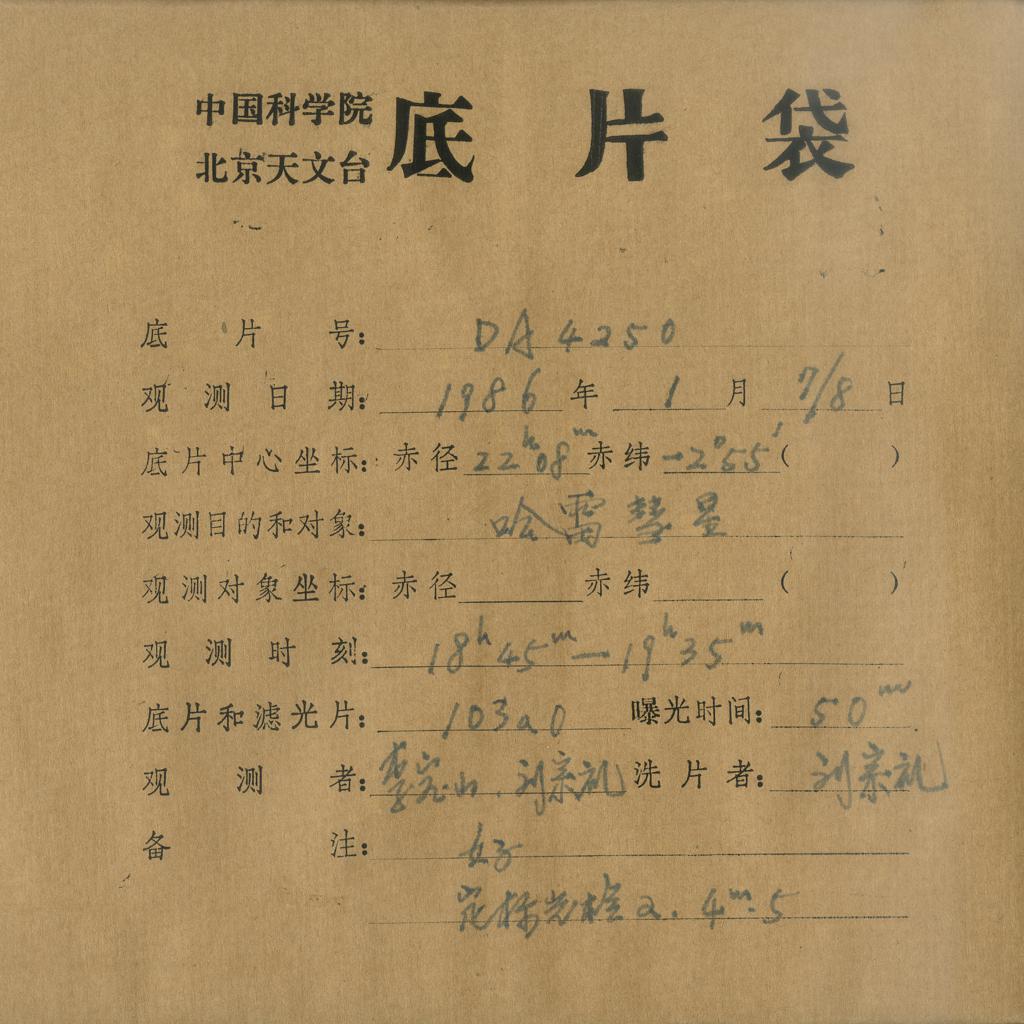 中国科学院
北京天文台
底片袋
底片号: DA4250
观测日期: 1986年1月7/8日
底片中心坐标: 赤径 22h08m 赤纬 -2°55′ ( )
观测目的和对象: 哈雷彗星
观测对象坐标: 赤径 赤纬 ( )
观测时刻: 18h45m—19h35m
底片和滤光片: 103aO 曝光时间: 50m
观测者: 刘宗礼 洗片者: 刘宗礼
备注: 好
定标光楔 2. 4m.5